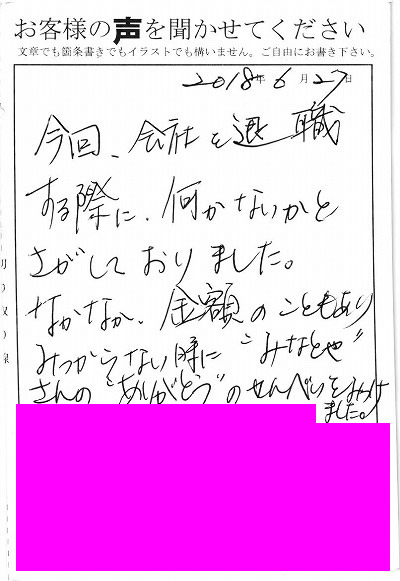 お客様の声を聞かせてください
文章でも箇条書きでもイラストでも構いません。ご自由にお書き下さい。
2018年6月27日
今回、会社を退職
する際に、何かないかと
さがしておりました。
なかなか、金額のこともあり
みつからない時に"みなとや"
さんの"ありがとう"のせんべいをみつけ
ました。